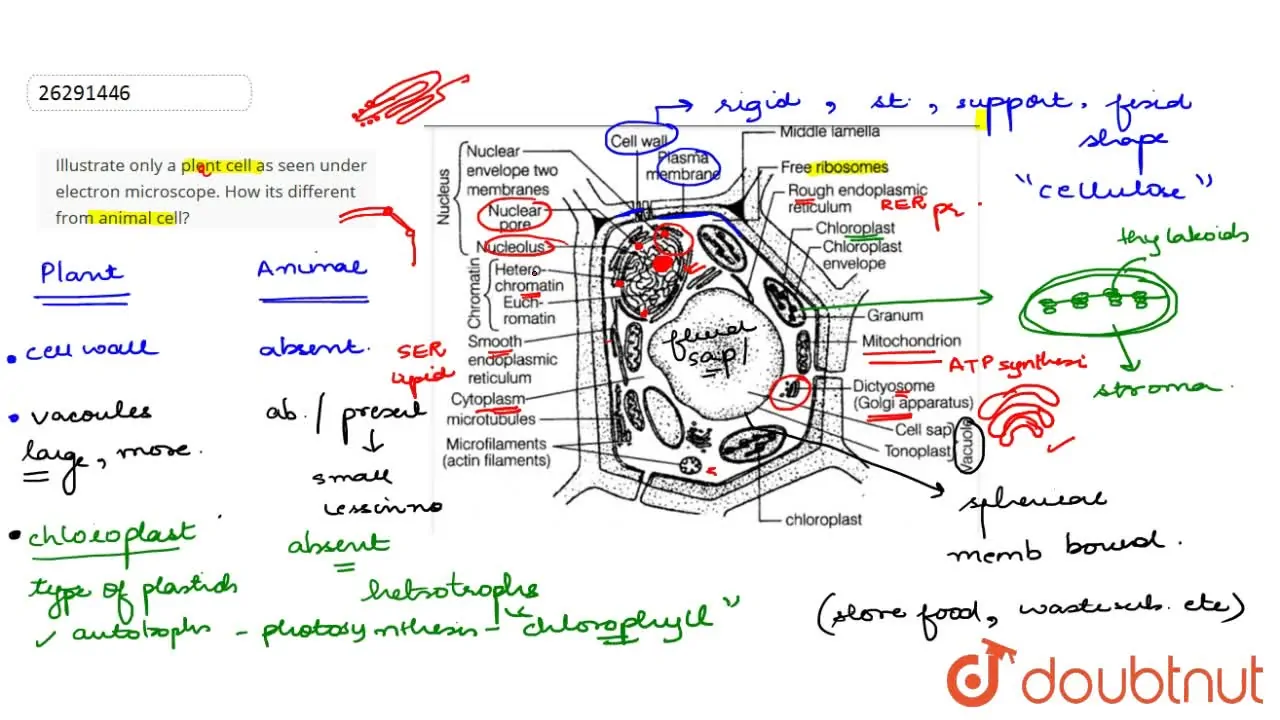 26291446
Illustrate only a plent cell as seen under
electron microscope. How its different
from animal cell?
Plant
Animal
cell wall
absent.
vacoules
ab. / present
large, more.
small
less in no
chloroplast
absent
type of plastids
hetrotrophs
autotrophs - photosynthesis - chlorophyll"
rigid, st., support, fixid
shape
"cellulose"
Nucleus
Nuclear
envelope two
membranes
Nuclear
pore
Nucleolus
Chromatin
Hetero-
chromatin
Euch-
romatin
Smooth
endoplasmic
reticulum
SER
lipid
Cytoplasm
microtubules
Microfilaments
(actin filaments)
Cell wall
Plasma
membrane
Middle lamella
Free ribosomes
Rough endoplasmic
reticulum
RER
Chloroplast
Chloroplast
envelope
Granum
Mitochondrion
ATP synthesi
Dictyosome
(Golgi apparatus)
Cell sap
Tonoplast
Vacuole
chloroplast
fluid
sap/
thylakoids
stroma.
spherical
memb bound.
(store food, waste sub. etc)
doubtnut